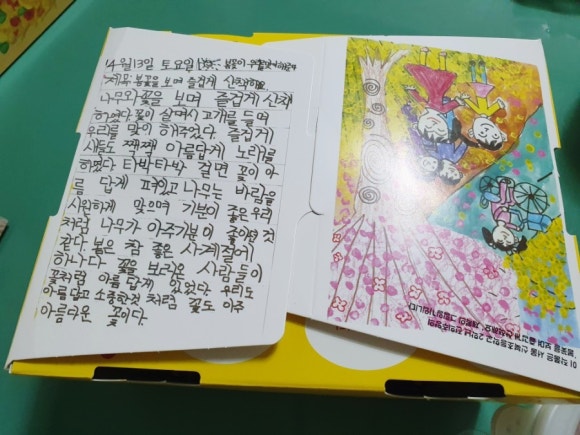 4월13일 토요일 날씨: 봄꽃이 우릴맞이해줘
제목: 봄꽃을 보며 즐겁게 산책해요
나무와꽃을 보며 즐겁게 산책
하였다. 꽃이 살며시 고개를 들며
우리를 맞이 해주었다. 즐겁게
새들도 짹짹 아름답게 노래를
하였다 타박타박 걸으면 꽃이 아
름 답게 펴있고 나무는 바람을
시원하게 맞으며 기분이 좋은 우리
처럼 나무가 아주기분이 좋아진 것
같다 봄은 참 좋은 사계절에
하나다. 꽃을 보러온 사람들이
꽃처럼 아름 답게 있었다. 우리도
아름답고 소중한것 처럼 꽃도 아주
아름다운 꽃이다.
이 작품의